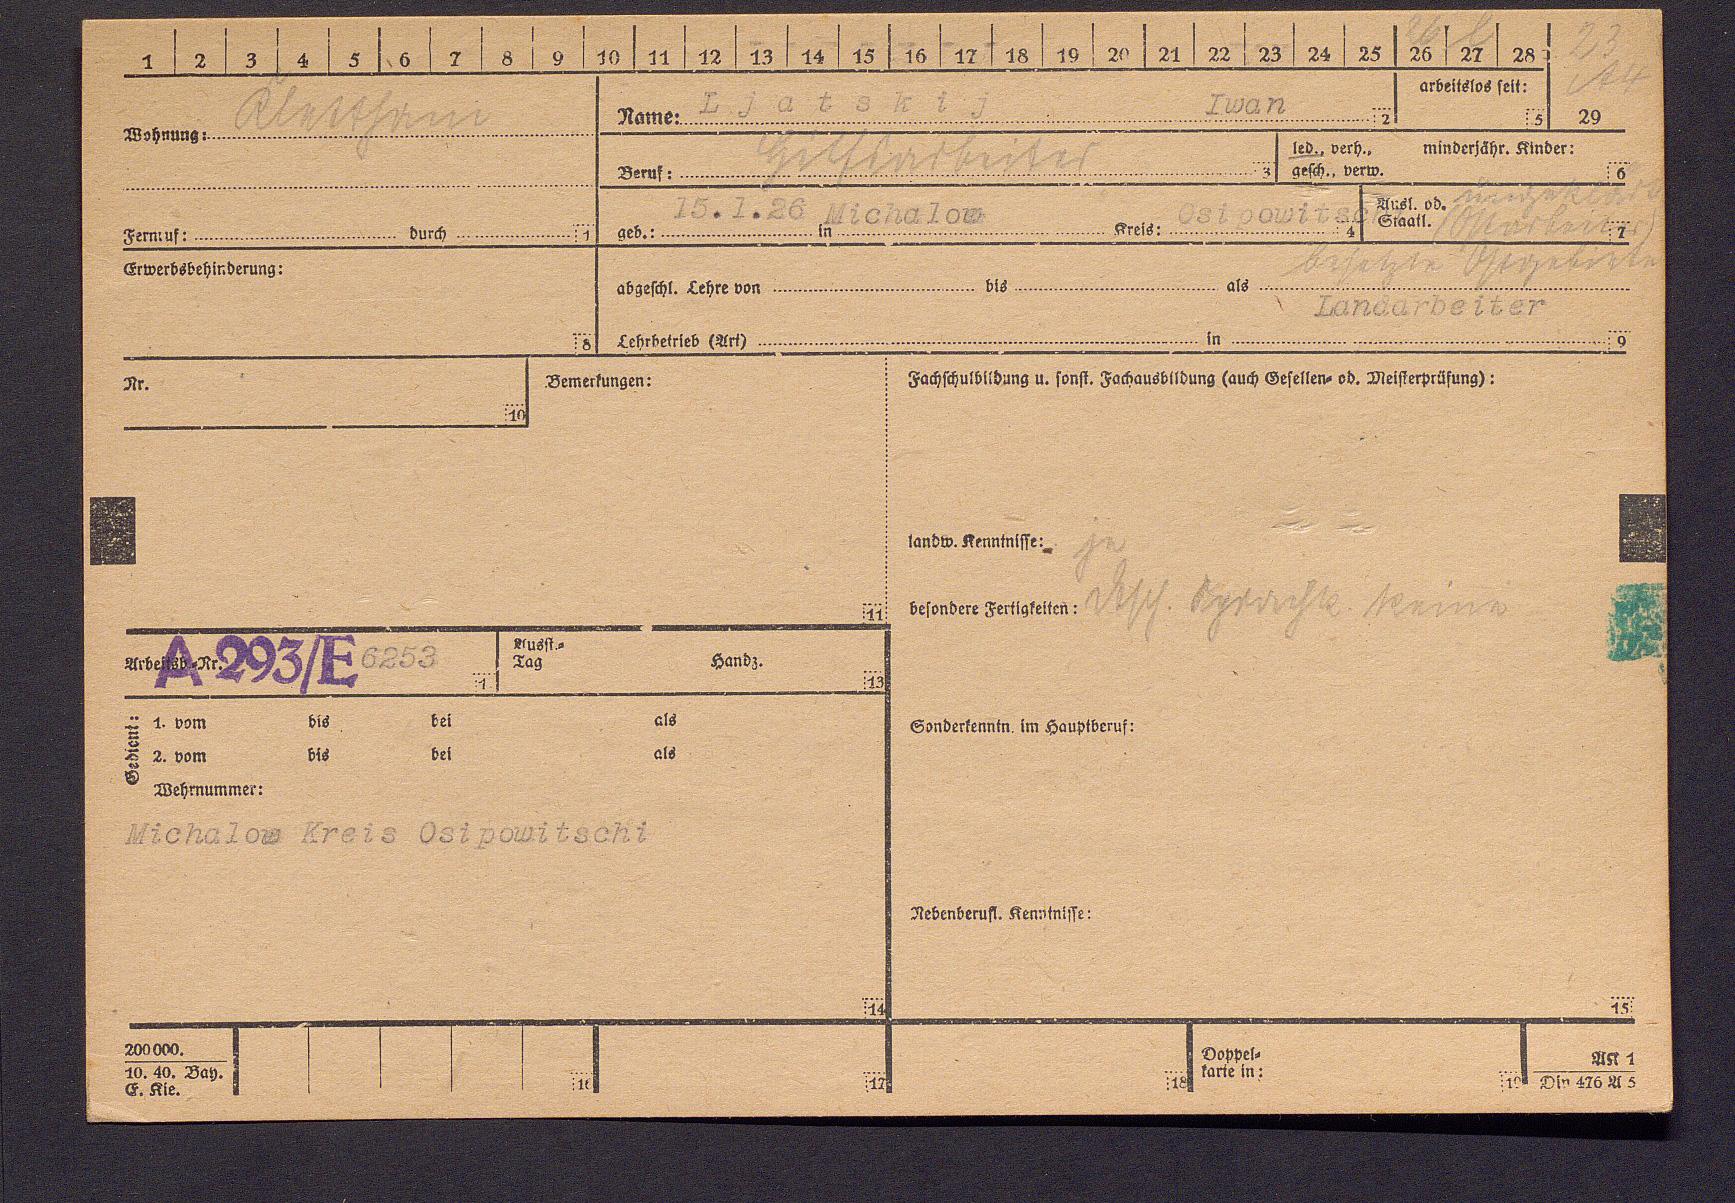 1 2 3 4 5 6 7 8 9 10 11 12 13 14 15 16 17 18 19 20 21 22 23 24 25 26 27 28
23
A4
Wohnung: Klettham
Name: Ljatskij Iwan 2
arbeitslos seit: 5
29
Beruf: Hilfsarbeiter 3
led., verh.,
gesch., verw.
minderjähr. Kinder: 6
Fernruf: durch 1
geb.: 15.1.26 in Michalow Kreis: Osipowitsch 4
Ausl. od.
Staatl. ungeklärt
(Ostarbeiter) 7
besetzte Ostgebiete
Erwerbsbehinderung: 8
abgeschl. Lehre von bis als
Landarbeiter
Lehrbetrieb (Art) in 9
Nr. 10
Bemerkungen: 11
Fachschulbildung u. sonst. Fachausbildung (auch Gesellen- od. Meisterprüfung):
landw. Kenntnisse: ja
besondere Fertigkeiten: Dtsch. Sprachk. keine
Arbeitsb.-Nr. A 293/E 6253 1
Ausst.-
Tag
Handz. 13
Sonderkenntn. im Hauptberuf:
Gedient:
1. vom bis bei als
2. vom bis bei als
Wehrnummer:
Michalow Kreis Osipowitschi
14
Nebenberufl. Kenntnisse:
15
200 000.
10. 40. Bay.
E. Kie.
16
17
18
Doppel-
karte in: 19
AK 1
Din 476 A 5